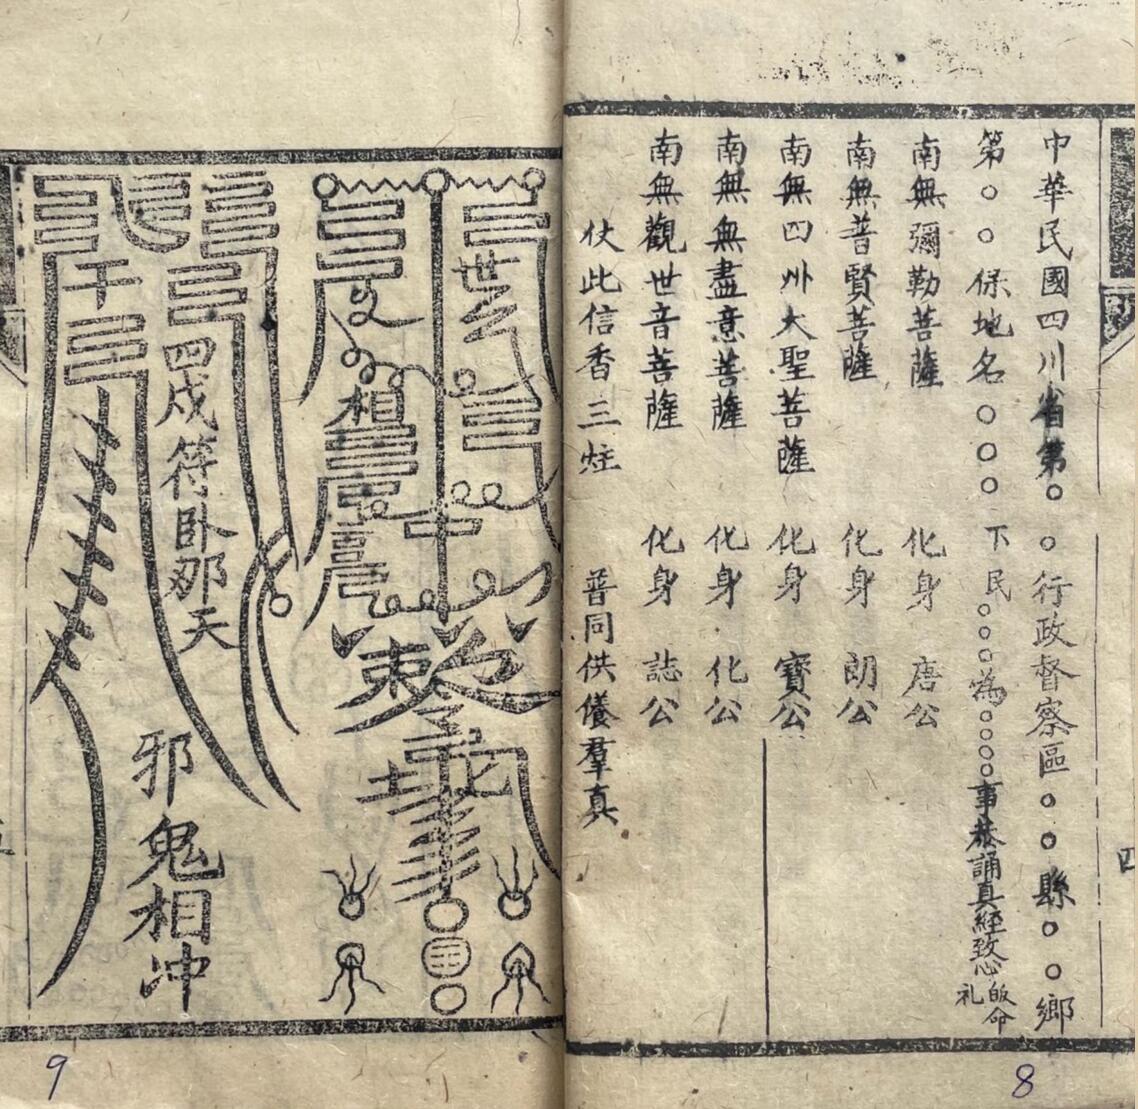 中華民國四川省第○○行政督察區○○縣○○鄉
第○○保地名○○○下民○○○○為○○○○事恭誦真經致心皈命礼
南無彌勒菩薩 化身 唐公
南無普賢菩薩 化身 朗公
南無四州大聖菩薩 化身 寶公
南無無盡意菩薩 化身 化公
南無觀世音菩薩 化身 誌公
仗此信香三炷 普同供儀羣真
四
四戍符卧那天
邪鬼相冲
9
8